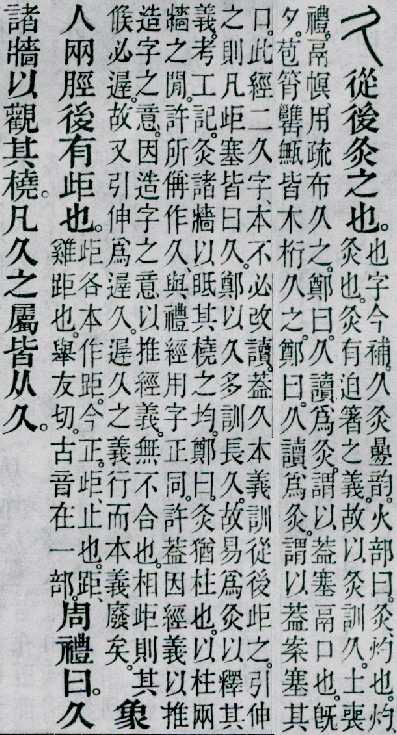 久 從後灸之也。
也字今補。久灸疊韵。火部曰。灸灼也。灼
灸也。灸有迫箸之義。故以灸訓久。士喪
禮。鬲幎用疏布久之。鄭曰。久讀爲灸。謂以葢塞鬲口也。旣
夕。苞筲罋甒皆木桁久之。鄭曰。久讀爲灸。謂以葢案塞其
口。此經二久字。本不必改讀。葢久本義訓從後歫之。引伸
之則凡歫塞皆曰久。鄭以久多訓長久。故易爲灸以釋其
義。考工記。灸諸牆以眡其橈之均。鄭曰。灸猶柱也。以柱兩
牆之閒。許所偁作久。與禮經用字正同。許葢因經義以推
造字之意。因造字之意以推經義。無不合也。相歫則其
候必遟。故又引伸爲遟久。遟久之義行而本義廢矣。
象
人兩脛後有歫也。
歫各本作距。今正。歫止也。距
雞距也。舉友切。古音在一部。
周禮曰。久
諸牆以觀其橈。凡久之屬皆从久。